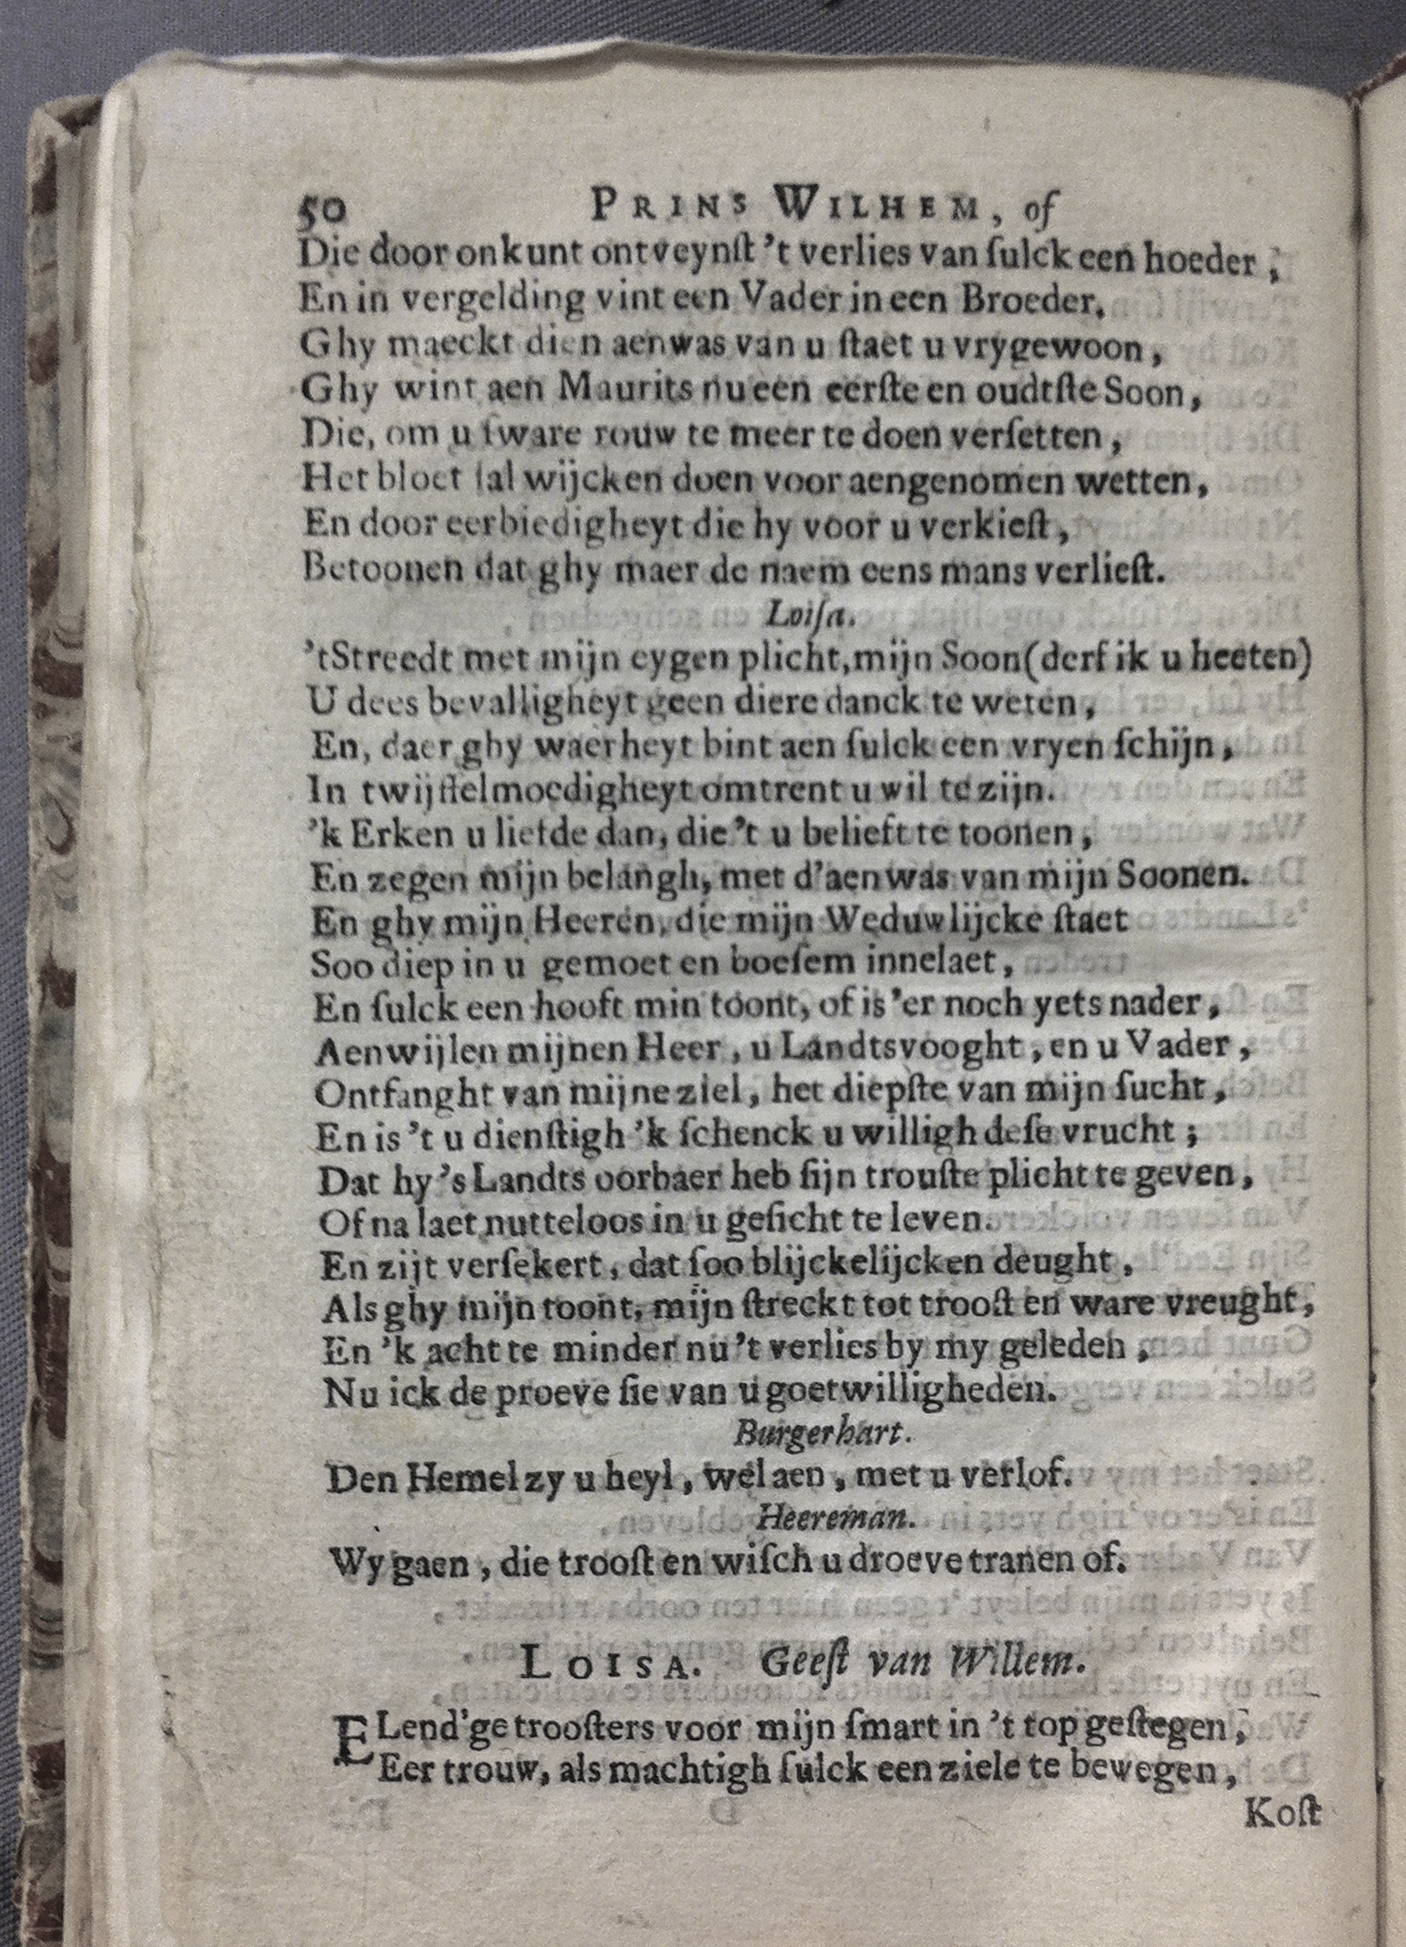 50 PRINS WILHEM, of
Die door onkunt ontveynſt 't verlies van ſulck een hoeder,
En in vergelding vint een Vader in een Broeder.
Ghy maeckt dien aenwas van u ſtaet u vrygewoon,
Ghy wint aen Maurits nu een eerſte en oudtſte Soon,
Die, om u ſware rouw te meer te doen verſetten,
Het bloet ſal wijcken doen voor aengenomen wetten,
En door eerbiedigheyt die hy voor u verkieſt,
Betoonen dat ghy maer de naem eens mans verlieſt.
Loiſa.
'tStreedt met mijn eygen plicht, mijn Soon (derf ik u heeten)
U dees bevalligheyt geen diere danck te weten,
En, daer ghy waerheyt bint aen ſulck een vryen ſchijn,
In twijffelmoedigheyt omtrent u wil te zijn.
'k Erken u liefde dan, die 't u belieft te toonen,
En zegen mijn belangh, met d'aenwas van mijn Soonen.
En ghy mijn Heeren, die mijn Weduwlijcke ſtaet
Soo diep in u gemoet en boeſem innelaet,
En ſulck een hooft min toont, of is 'er noch yets nader,
Aenwijlen mijnen Heer, u Landtsvooght, en u Vader,
Ontfanght van mijne ziel, het diepſte van mijn ſucht,
En is 't u dienſtigh 'k ſchenck u willigh deſe vrucht;
Dat hy 's Landts oorbaer heb ſijn trouſte plicht te geven,
Of na laet nutteloos in u geſicht te leven.
En zijt verſekert, dat ſoo blijckelijcken deught,
Als ghy mijn toont, mijn ſtreckt tot trooſt en ware vreught,
En 'k acht te minder nu 't verlies by my geleden,
Nu ick de proeve ſie van u goetwilligheden.
Burgerhart.
Den Hemel zy u heyl, wel aen, met u verlof.
Heereman.
Wy gaen, die trooſt en wiſch u droeve tranen of.
LOISA. Geeſt van Willem.
ELend'ge trooſters voor mijn ſmart in 't top geſtegen,
Eer trouw, als machtigh ſulck een ziele te bewegen,
Koſt